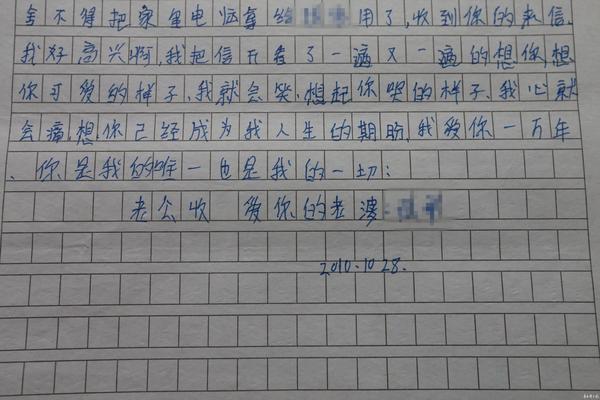 舍不得把家里电脑拿给用了,收到你的来信
我好高兴啊,我把信看了一遍又一遍的想你,想
你可爱的样子,我就会笑,想起你哭的样子,我心就
会痛,想你已经成为我人生的期盼,我爱你一万年
、你是我的唯一也是我的一切:
老公收 爱你的老婆:
2010.10.28.